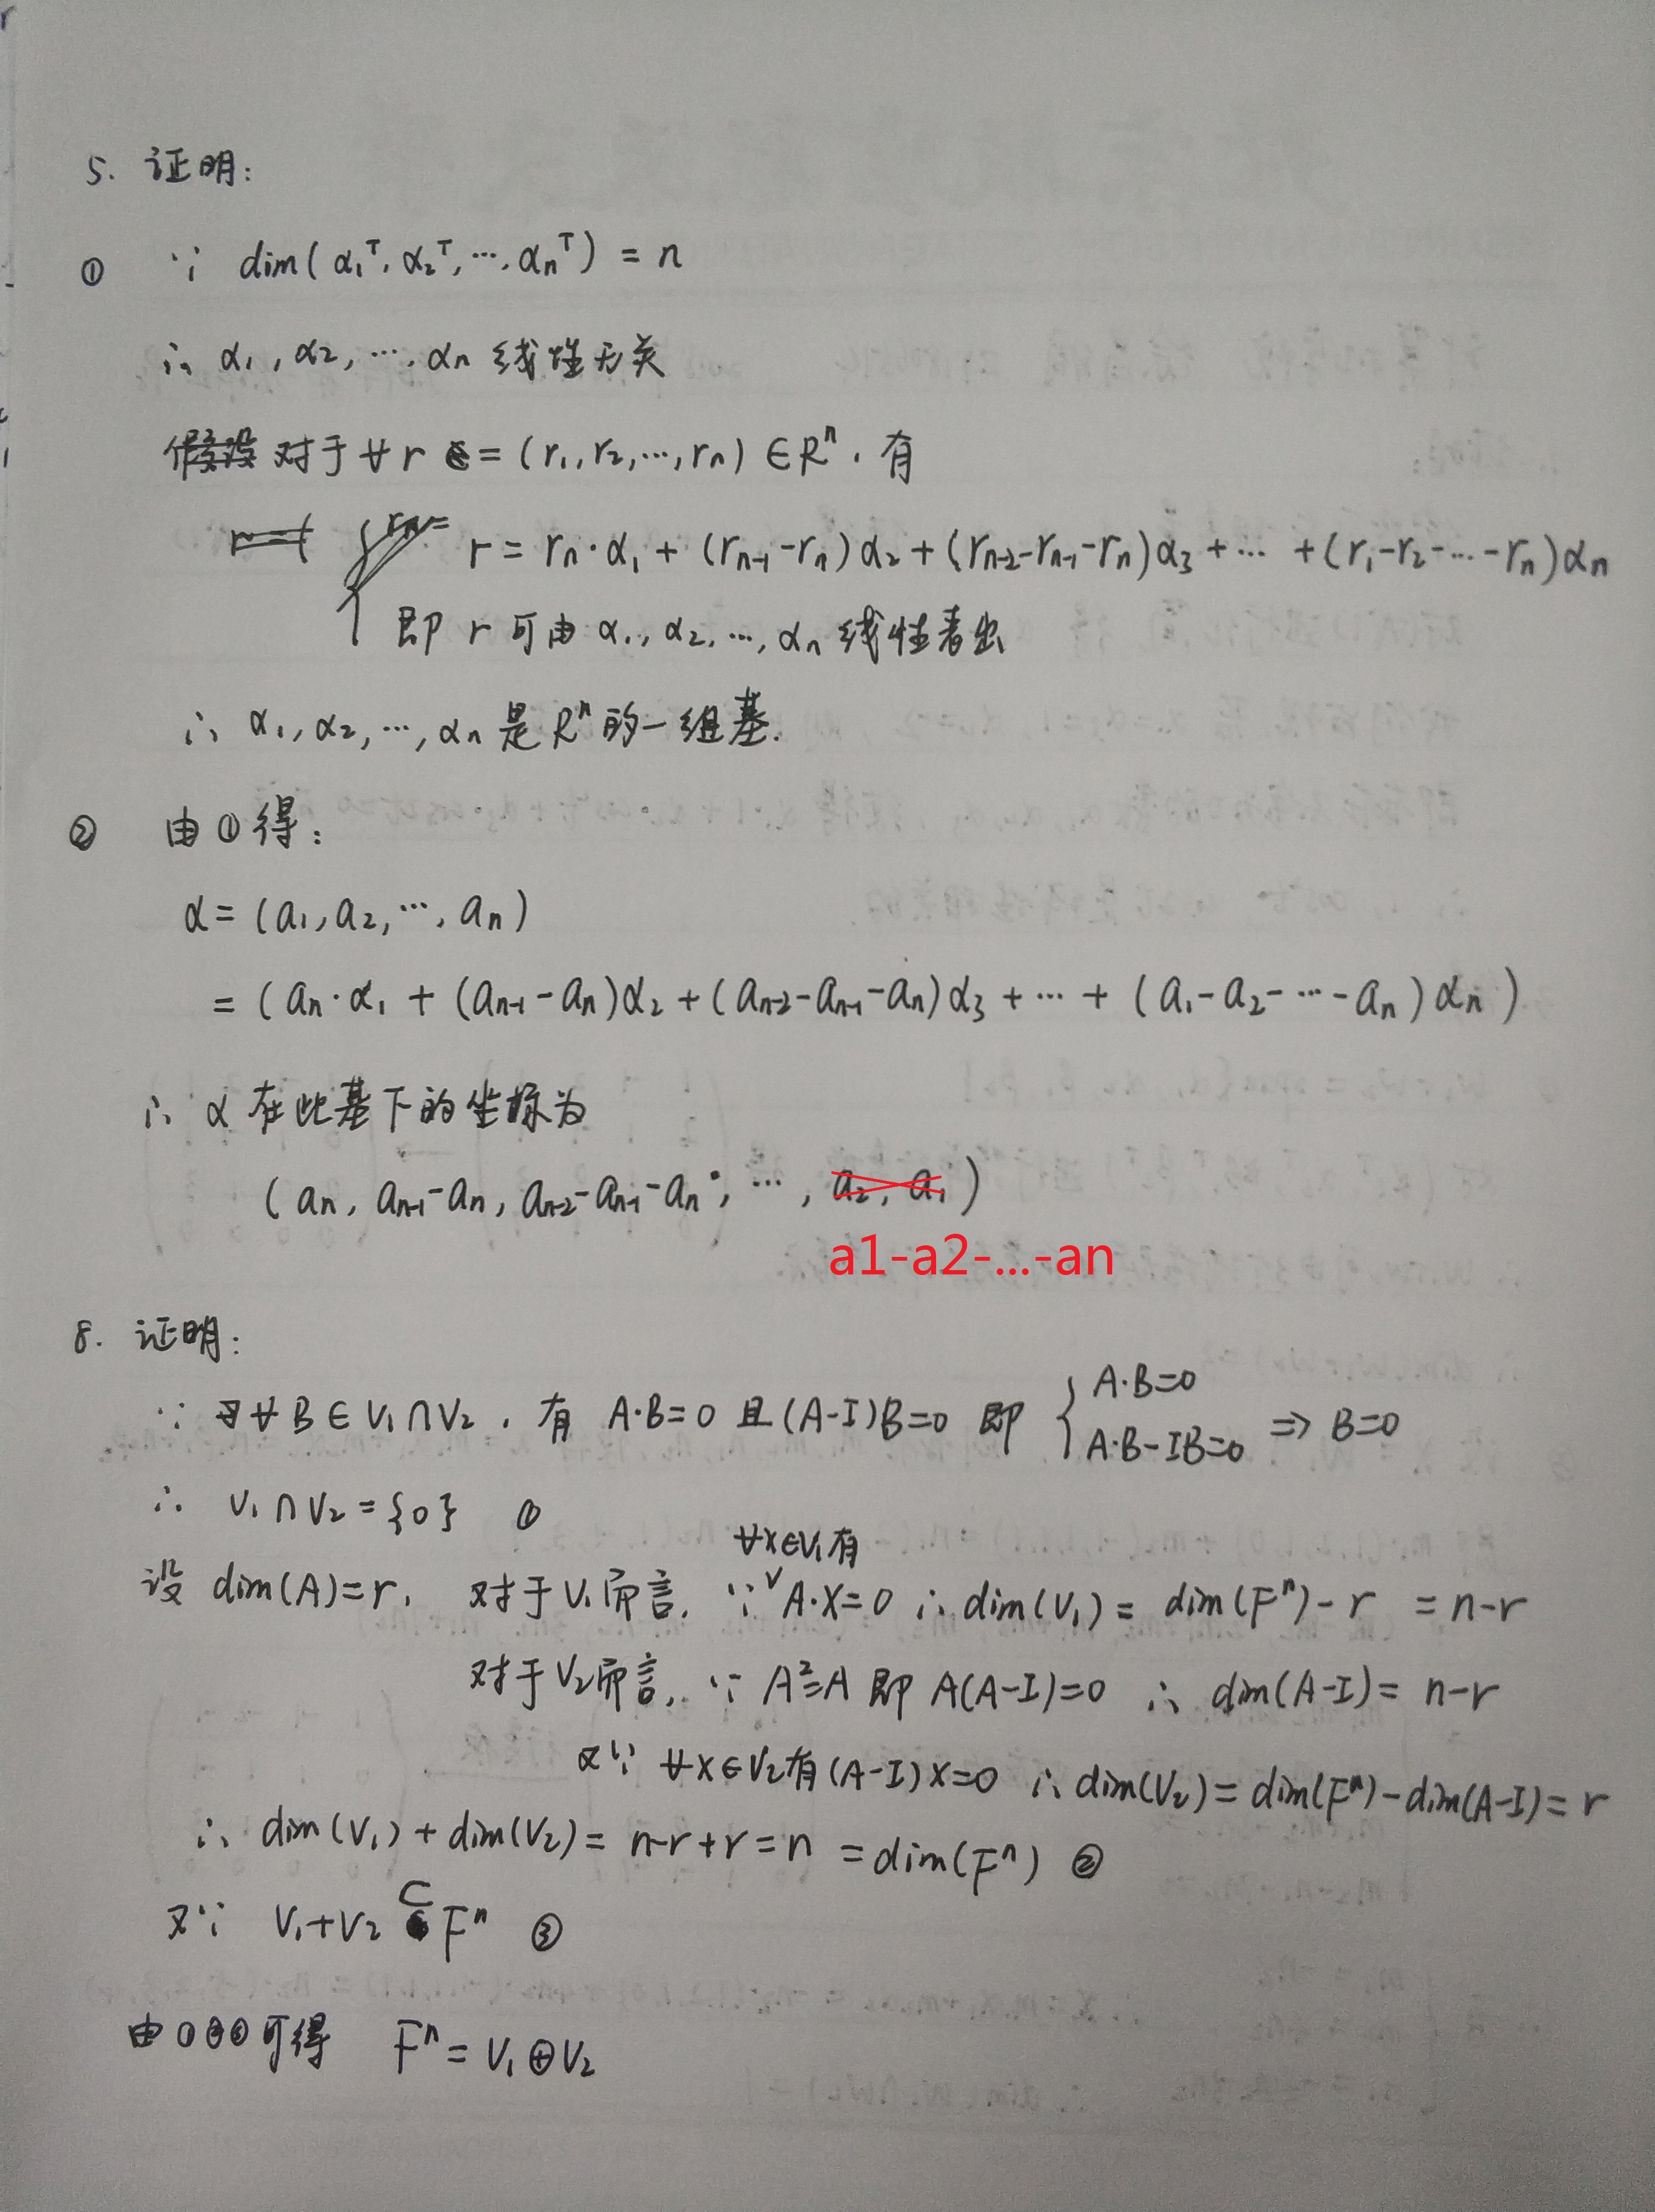 5. 证明:
① ∵ dim(α₁ᵀ, α₂ᵀ, ⋯, αₙᵀ) = n
∴ α₁, α₂, ⋯, αₙ 线性无关
假设 对于 ∀ r = (r₁, r₂, ⋯, rₙ) ∈ Rⁿ, 有
r = rₙ·α₁ + (rₙ₋₁-rₙ)α₂ + (rₙ₋₂-rₙ₋₁-rₙ)α₃ + ⋯ + (r₁-r₂-⋯-rₙ)αₙ
即 r 可由 α₁, α₂, ⋯, αₙ 线性表出
∴ α₁, α₂, ⋯, αₙ 是 Rⁿ 的一组基.
② 由①得:
α = (a₁, a₂, ⋯, aₙ)
= (aₙ·α₁ + (aₙ₋₁-aₙ)α₂ + (aₙ₋₂-aₙ₋₁-aₙ)α₃ + ⋯ + (a₁-a₂-⋯-aₙ)αₙ)
∴ α 在此基下的坐标为
(aₙ, aₙ₋₁-aₙ, aₙ₋₂-aₙ₋₁-aₙ, ⋯, a₂, a₁)
a1-a2-...-an
8. 证明:
∵ ∀ B ∈ V₁∩V₂, 有 A·B=0 且 (A-I)B=0 即 { A·B=0 A·B-IB=0 ⇒ B=0
∴ V₁∩V₂ = {0} ①
∀X∈V₁有
设 dim(A)=r, 对于V₁而言, ∵ A·X=0 ∴ dim(V₁) = dim(Fⁿ)-r = n-r
对于V₂而言, ∵ A²=A 即 A(A-I)=0 ∴ dim(A-I) = n-r
又∵ ∀X∈V₂有(A-I)X=0 ∴ dim(V₂) = dim(Fⁿ)-dim(A-I) = r
∴ dim(V₁)+dim(V₂) = n-r+r = n = dim(Fⁿ) ②
又∵ V₁+V₂ ⊂ Fⁿ ③
由①②③可得 Fⁿ = V₁⊕V₂